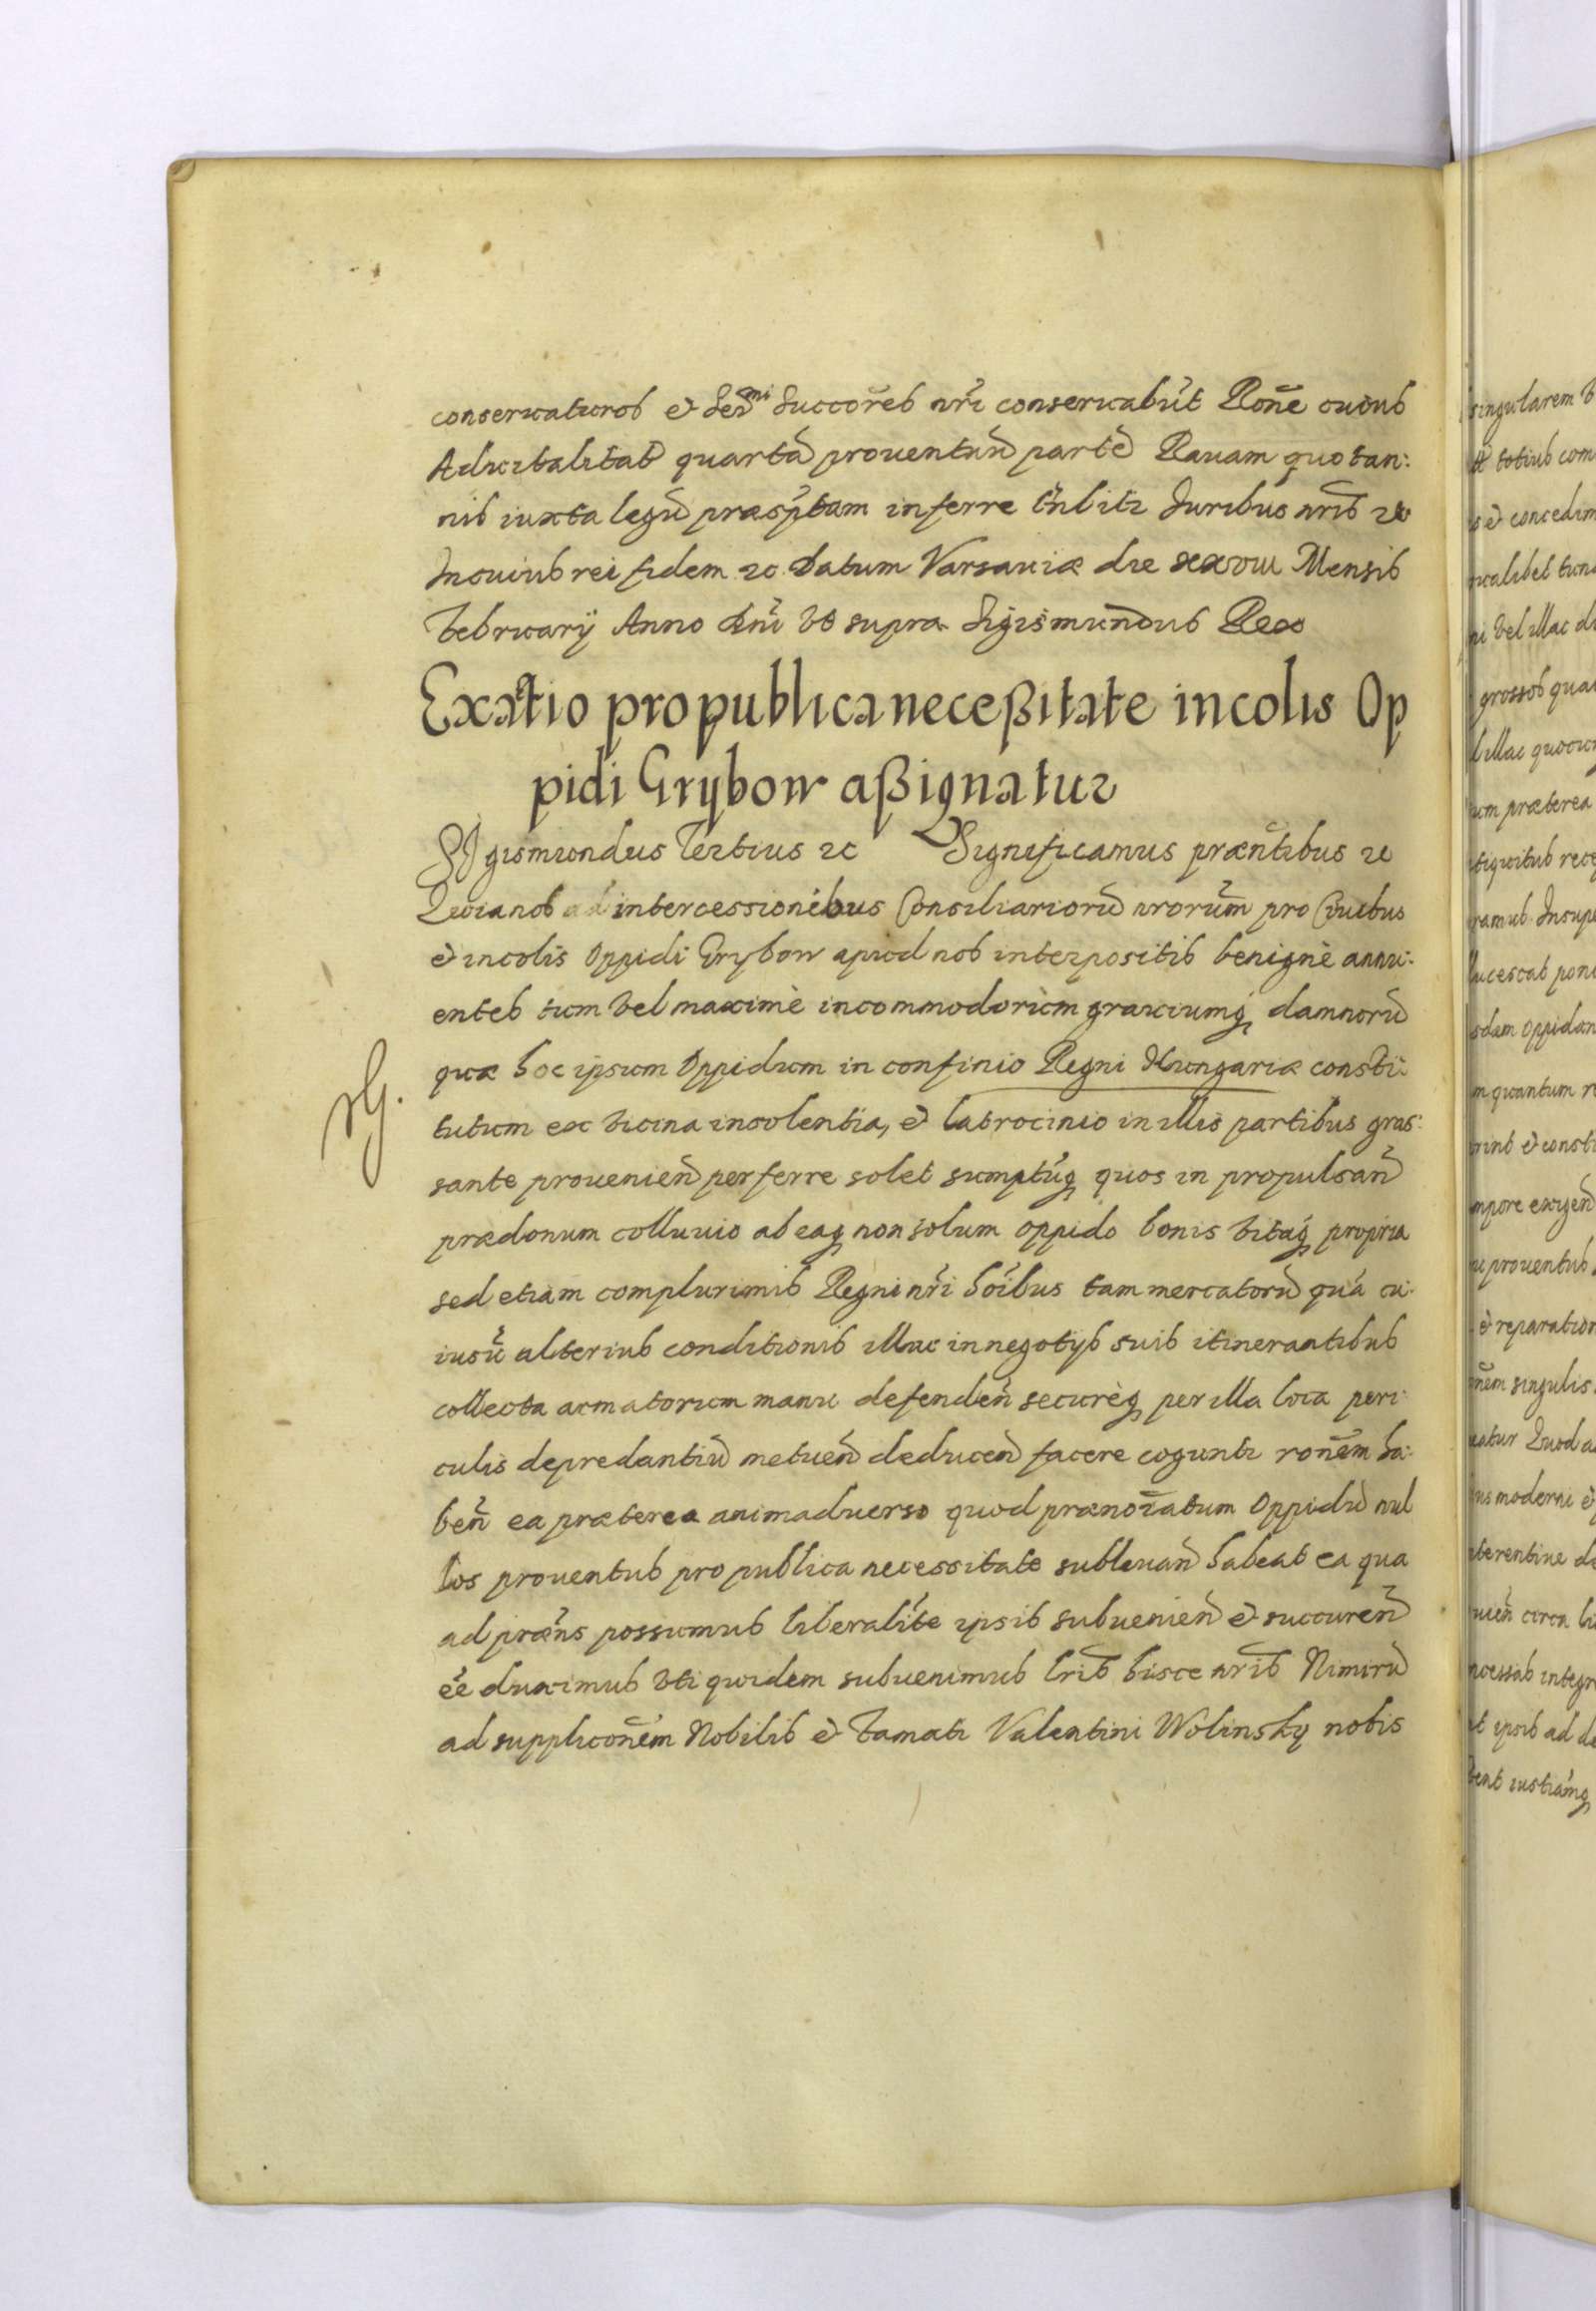 conseruaturos et Ser͠mi Succores nr̃i conseruabũt Ro͠ne cuius
Aduitalitat͠ quartã prouentuũ partẽ Rauam quotan:
nis iuxta legũ præsp̃tam inferre tñbitr Juribus nr̃is ꝛc
Jncuius rei fidem ꝛc Datum Varsauiæ die xxviii Mensis
Februarÿ Anno Dñi vt supra Sigismundus Rex
Exactio pro publica neceßitate incolis Op
pidi Grybow aßignatur
SIgismundus Tertius ꝛc Significamus præñtibus ꝛc
Quia nos ad intercessionibus Consiliariorũ nrorũm pro Ciuibus
et incolis Oppidi Grybow apud nos interpositis benignè annu:
entes tum vel maximè incommodorum grauiumq damnorũ
quæ hoc ipsum Oppidum in confinio Regni Hungariæ consti:
tutum ex vicina insolentia, et latrocinio in illis partibus gras:
sante prouenieñ perferre solet sumptũq quos in propulsañ
prædonum colluuio ab eaq non solum oppido bonis vitaq propria
sed etiam complurimis Regni nr̃i hoĩbus tam mercatorũ quã cu:
iusũ alterius conditionis illac in negotÿs suis itinerantibus
collecta armatorum manu defendeñ securèq per illa loca peri:
culis depredantiũ metueñ deduceñ facere coguntr ronẽm ha:
beñ ea præterea animaduerso quod prænoĩatum Oppidũ nul
los prouentus pro publica necessitate subleuañ habeat ea qua
ad præñs possumus liberalĩte ipsis subuenieñ et succureñ
eẽ duximus vti quidem subuenimus lrĩs hisce nr̃is Nimirũ
ad supplicoñem Nobilis et Famati Valentini Wolinsky nobis